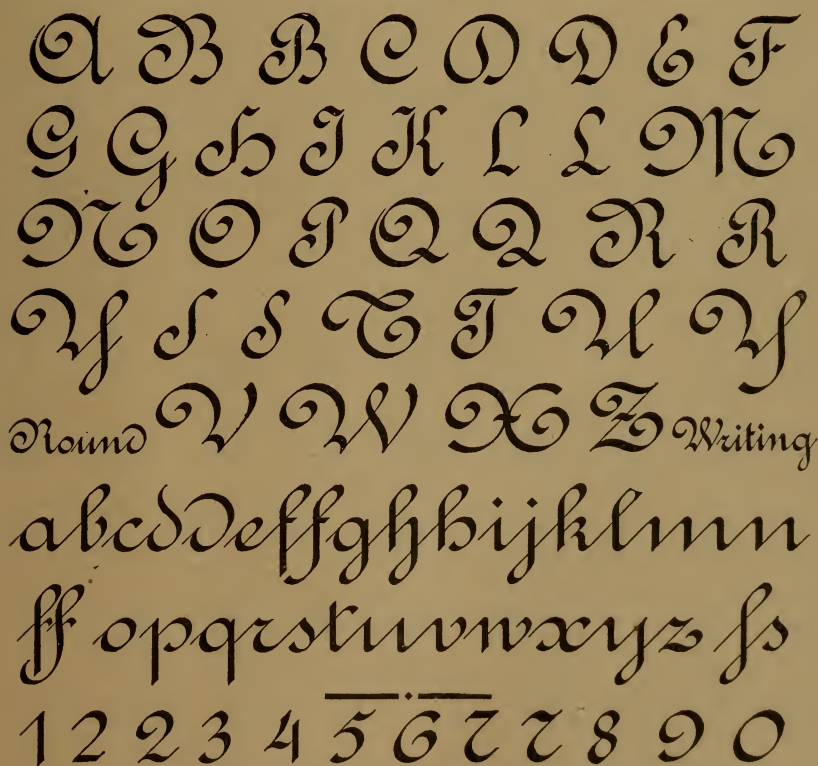 A B B C D D E F
G G H I K L L M
N O P Q Q R R
Y S S T T U Y
Round V W X Z Writing
a b c d d e f f g h h i j k l m n
ff o p q r s t u v w x y z ſs
1 2 2 3 4 5 6 7 7 8 9 0